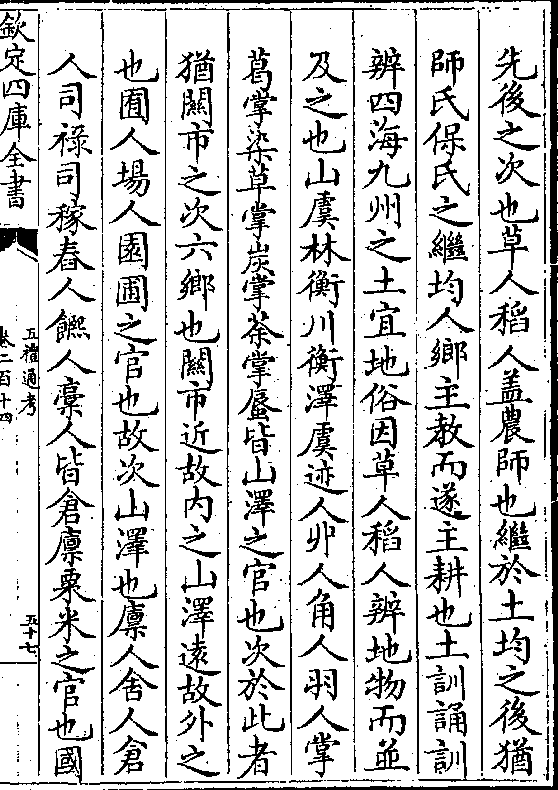 先後之次也草人稻人盖農師也繼於土均之後猶
師氏保氏之繼均人鄉主教而遂主耕也土訓誦訓
辨四海九州之土宜地俗因草人稻人辨地物而並
及之也山虞林衡川衡澤虞迹人丱人角人羽人掌
葛掌染草掌炭掌荼掌蜃皆山澤之官也次於此者
猶關市之次六鄉也關市近故内之山澤遠故外之
也囿人場人園圃之官也故次山澤也廪人舍人倉
人司禄司稼舂人饎人稾人皆倉廪粟米之官也國
欽定四庫全書
五禮通考
卷二百十四
五十七